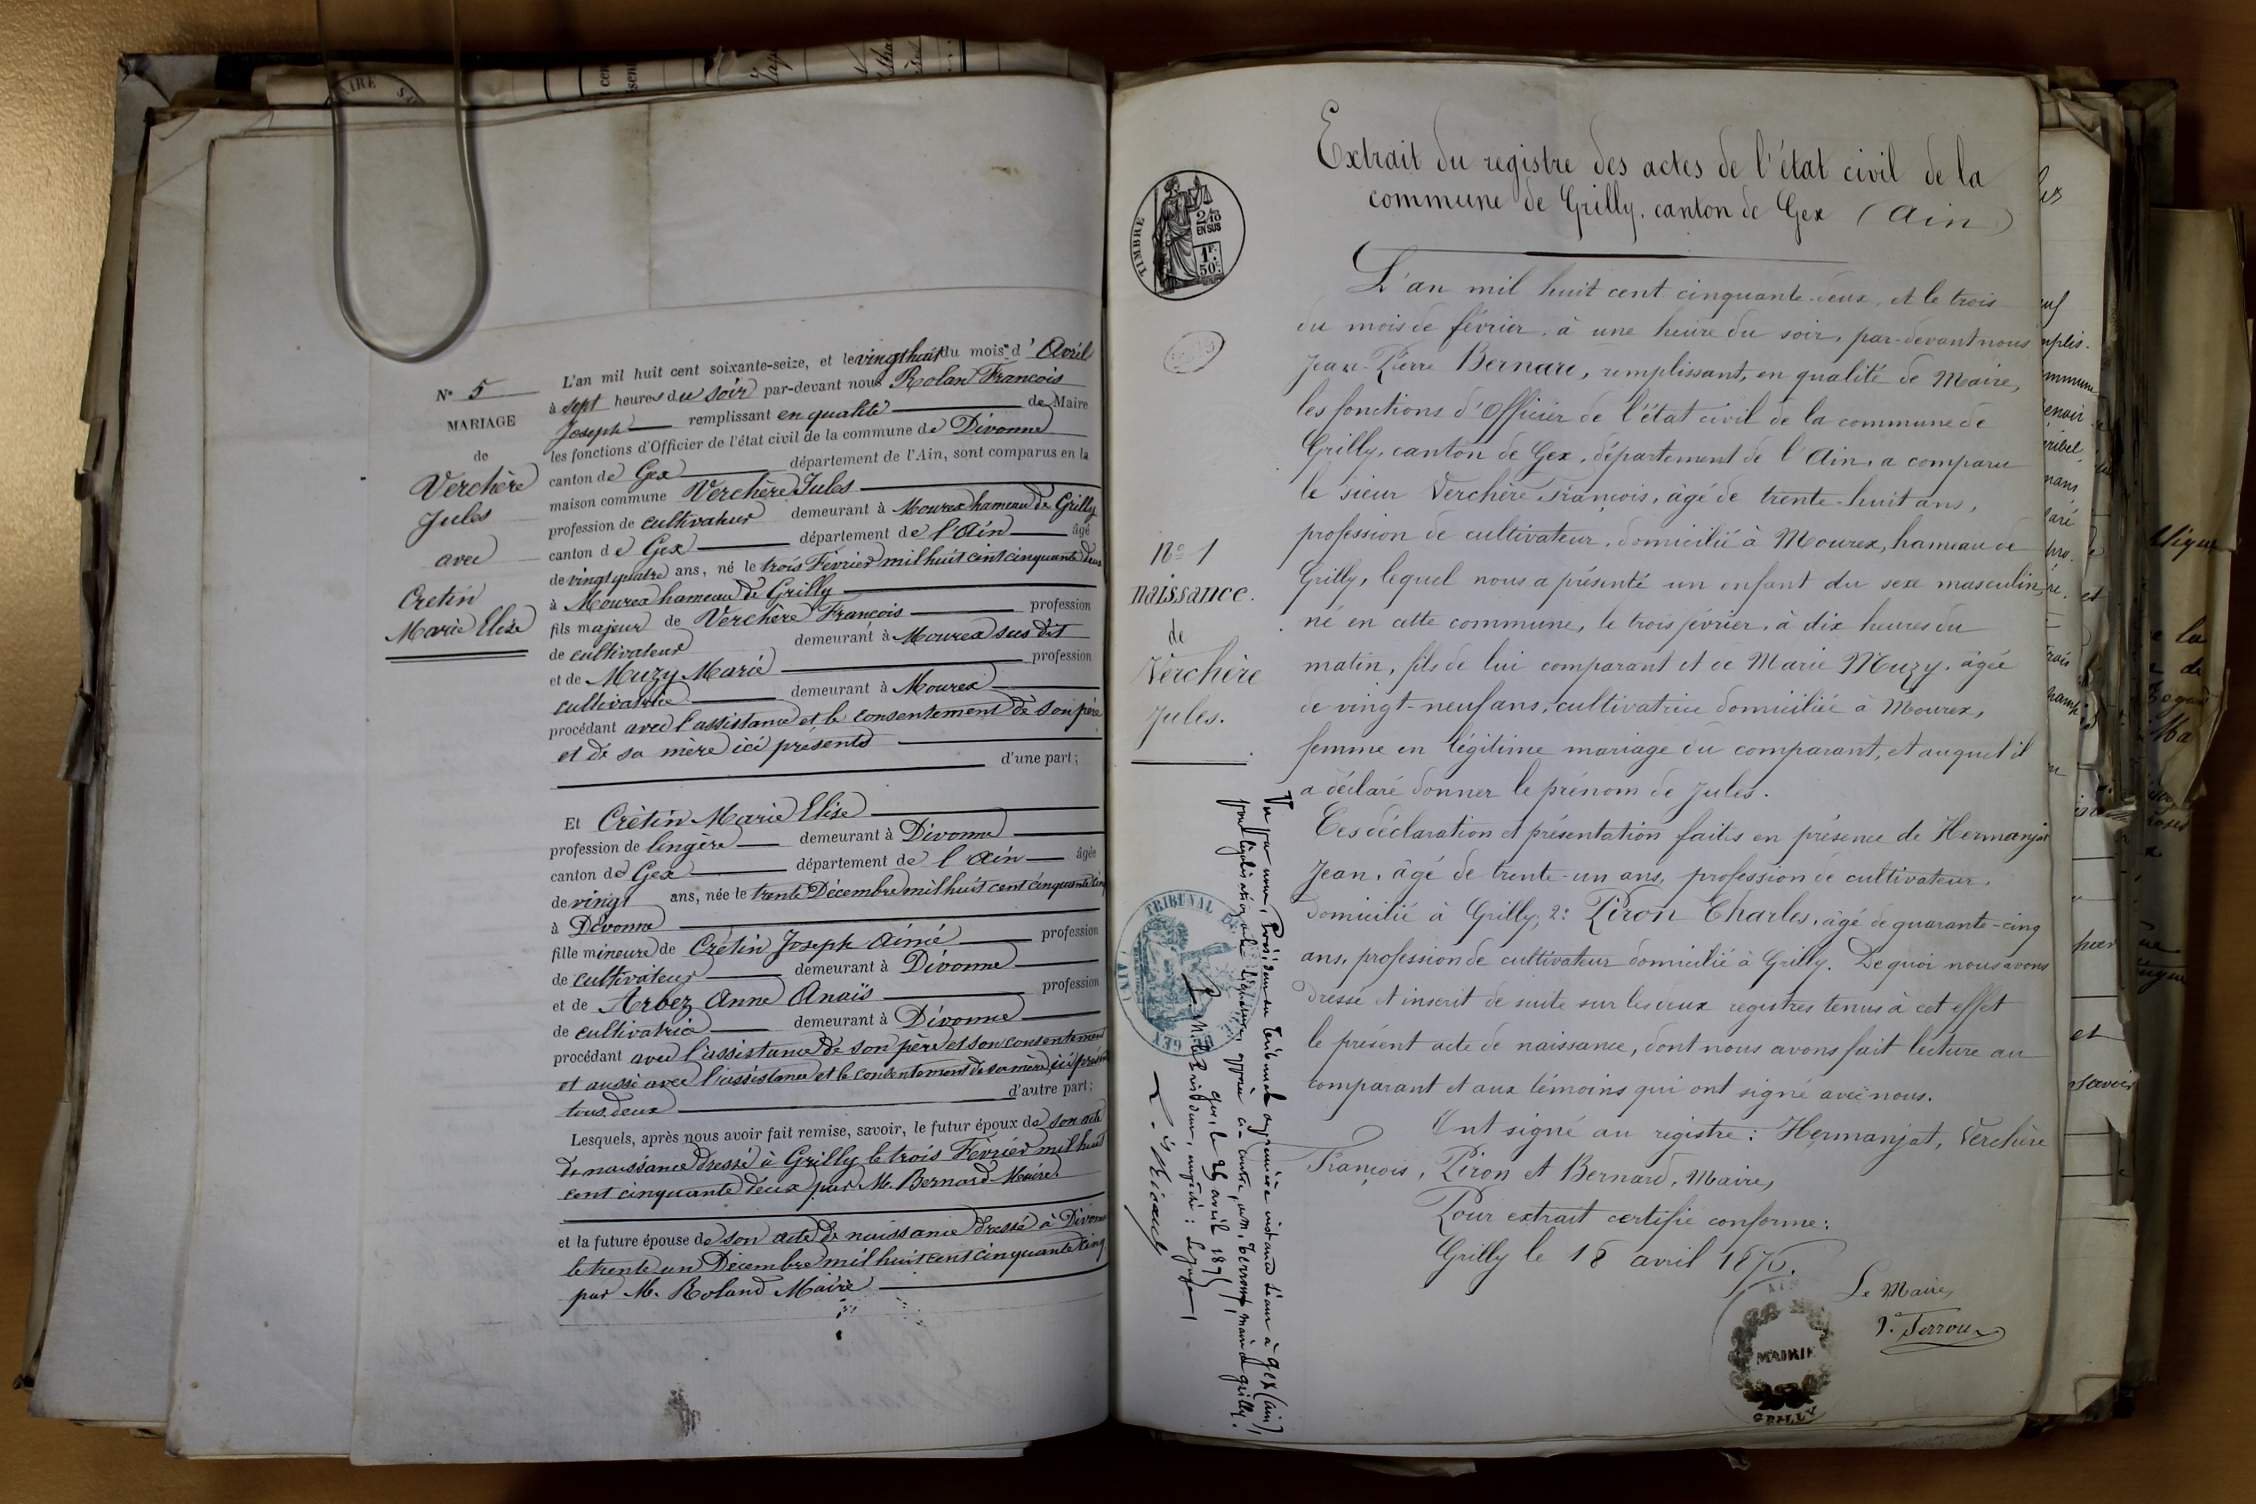 N° 5
MARIAGE
de
Verchère
Jules
avec
Cretin
Marie Elise
L'an mil huit cent soixante-seize, et le vingt huit du mois d'Avril
à sept heures du soir par-devant nous Rolan François
Joseph remplissant en qualité de Maire
les fonctions d'Officier de l'état civil de la commune de Divonne
canton de Gex département de l'Ain, sont comparus en la
maison commune Verchère Jules
profession de cultivateur demeurant à Mourex hameau de Grilly
canton de Gex département de l'Ain âgé
de vingt quatre ans, né le trois Février mil huit cent cinquante deux
à Mourex hameau de Grilly
fils majeur de Verchère François profession
de cultivateur demeurant à Mourex sus dit
et de Muzy Marie profession
cultivatrice demeurant à Mourex
procédant avec l'assistance et le consentement de son père
et de sa mère ici présents
d'une part;
Et Crétin Marie Elise
profession de lingère demeurant à Divonne
canton de Gex département de l'Ain âgée
de vingt ans, née le trente Décembre mil huit cent cinquante cinq
à Divonne
fille mineure de Crétin Joseph Aimé profession
de cultivateur demeurant à Divonne
et de Arbez Anne Anaïs profession
de cultivatrice demeurant à Divonne
procédant avec l'assistance de son père et son consentement
et aussi avec l'assistance et le consentement de sa mère, ici présents
tous deux d'autre part;
Lesquels, après nous avoir fait remise, savoir, le futur époux de son acte
de naissance dressé à Grilly le trois Février mil huit
cent cinquante deux par M. Bernard Maire
et la future épouse de son acte de naissance dressé à Divonne
le trente un Décembre mil huit cent cinquante cinq
par M. Roland Maire
Extrait du registre des actes de l'état civil de la
commune de Grilly, canton de Gex (Ain)
TIMBRE
2/10
EN SUS
1F.
50c.
L'an mil huit cent cinquante-deux, et le trois
du mois de février, à une heure du soir, par-devant nous
Jean-Pierre Bernard, remplissant, en qualité de Maire,
les fonctions d'Officier de l'état civil de la commune de
Grilly, canton de Gex, département de l'Ain, a comparu
le sieur Verchère François, âgé de trente-huit ans,
profession de cultivateur, domicilié à Mourex, hameau de
Grilly, lequel nous a présenté un enfant du sexe masculin,
né en cette commune, le trois février, à dix heures du
matin, fils de lui comparant et de Marie Muzy, âgée
de vingt-neuf ans, cultivatrice domiciliée à Mourex,
femme en légitime mariage du comparant, et auquel il
a déclaré donner le prénom de Jules.
Ces déclaration et présentation faites en présence de Hermanjat
Jean, âgé de trente-un ans, profession de cultivateur,
domicilié à Grilly, 2: Piron Charles, âgé de quarante-cinq
ans, profession de cultivateur domicilié à Grilly. De quoi nous avons
dressé et inscrit de suite sur les deux registres tenus à cet effet
le présent acte de naissance, dont nous avons fait lecture au
comparant et aux témoins qui ont signé avec nous.
Ont signé au registre: Hermanjat, Verchère
François, Piron et Bernard, Maire,
Pour extrait certifié conforme:
Grilly le 18 avril 1876.
Le Maire,
MAIRIE
GRILLY
N° 1
naissance.
de
Verchère
Jules.
Vu par nous, Président du Tribunal de première instance séant à Gex (Ain),
pour légalisation de la signature, apposée ci-contre, de M. Perroux, maire de Grilly.
TRIBUNAL
GEX (AIN)